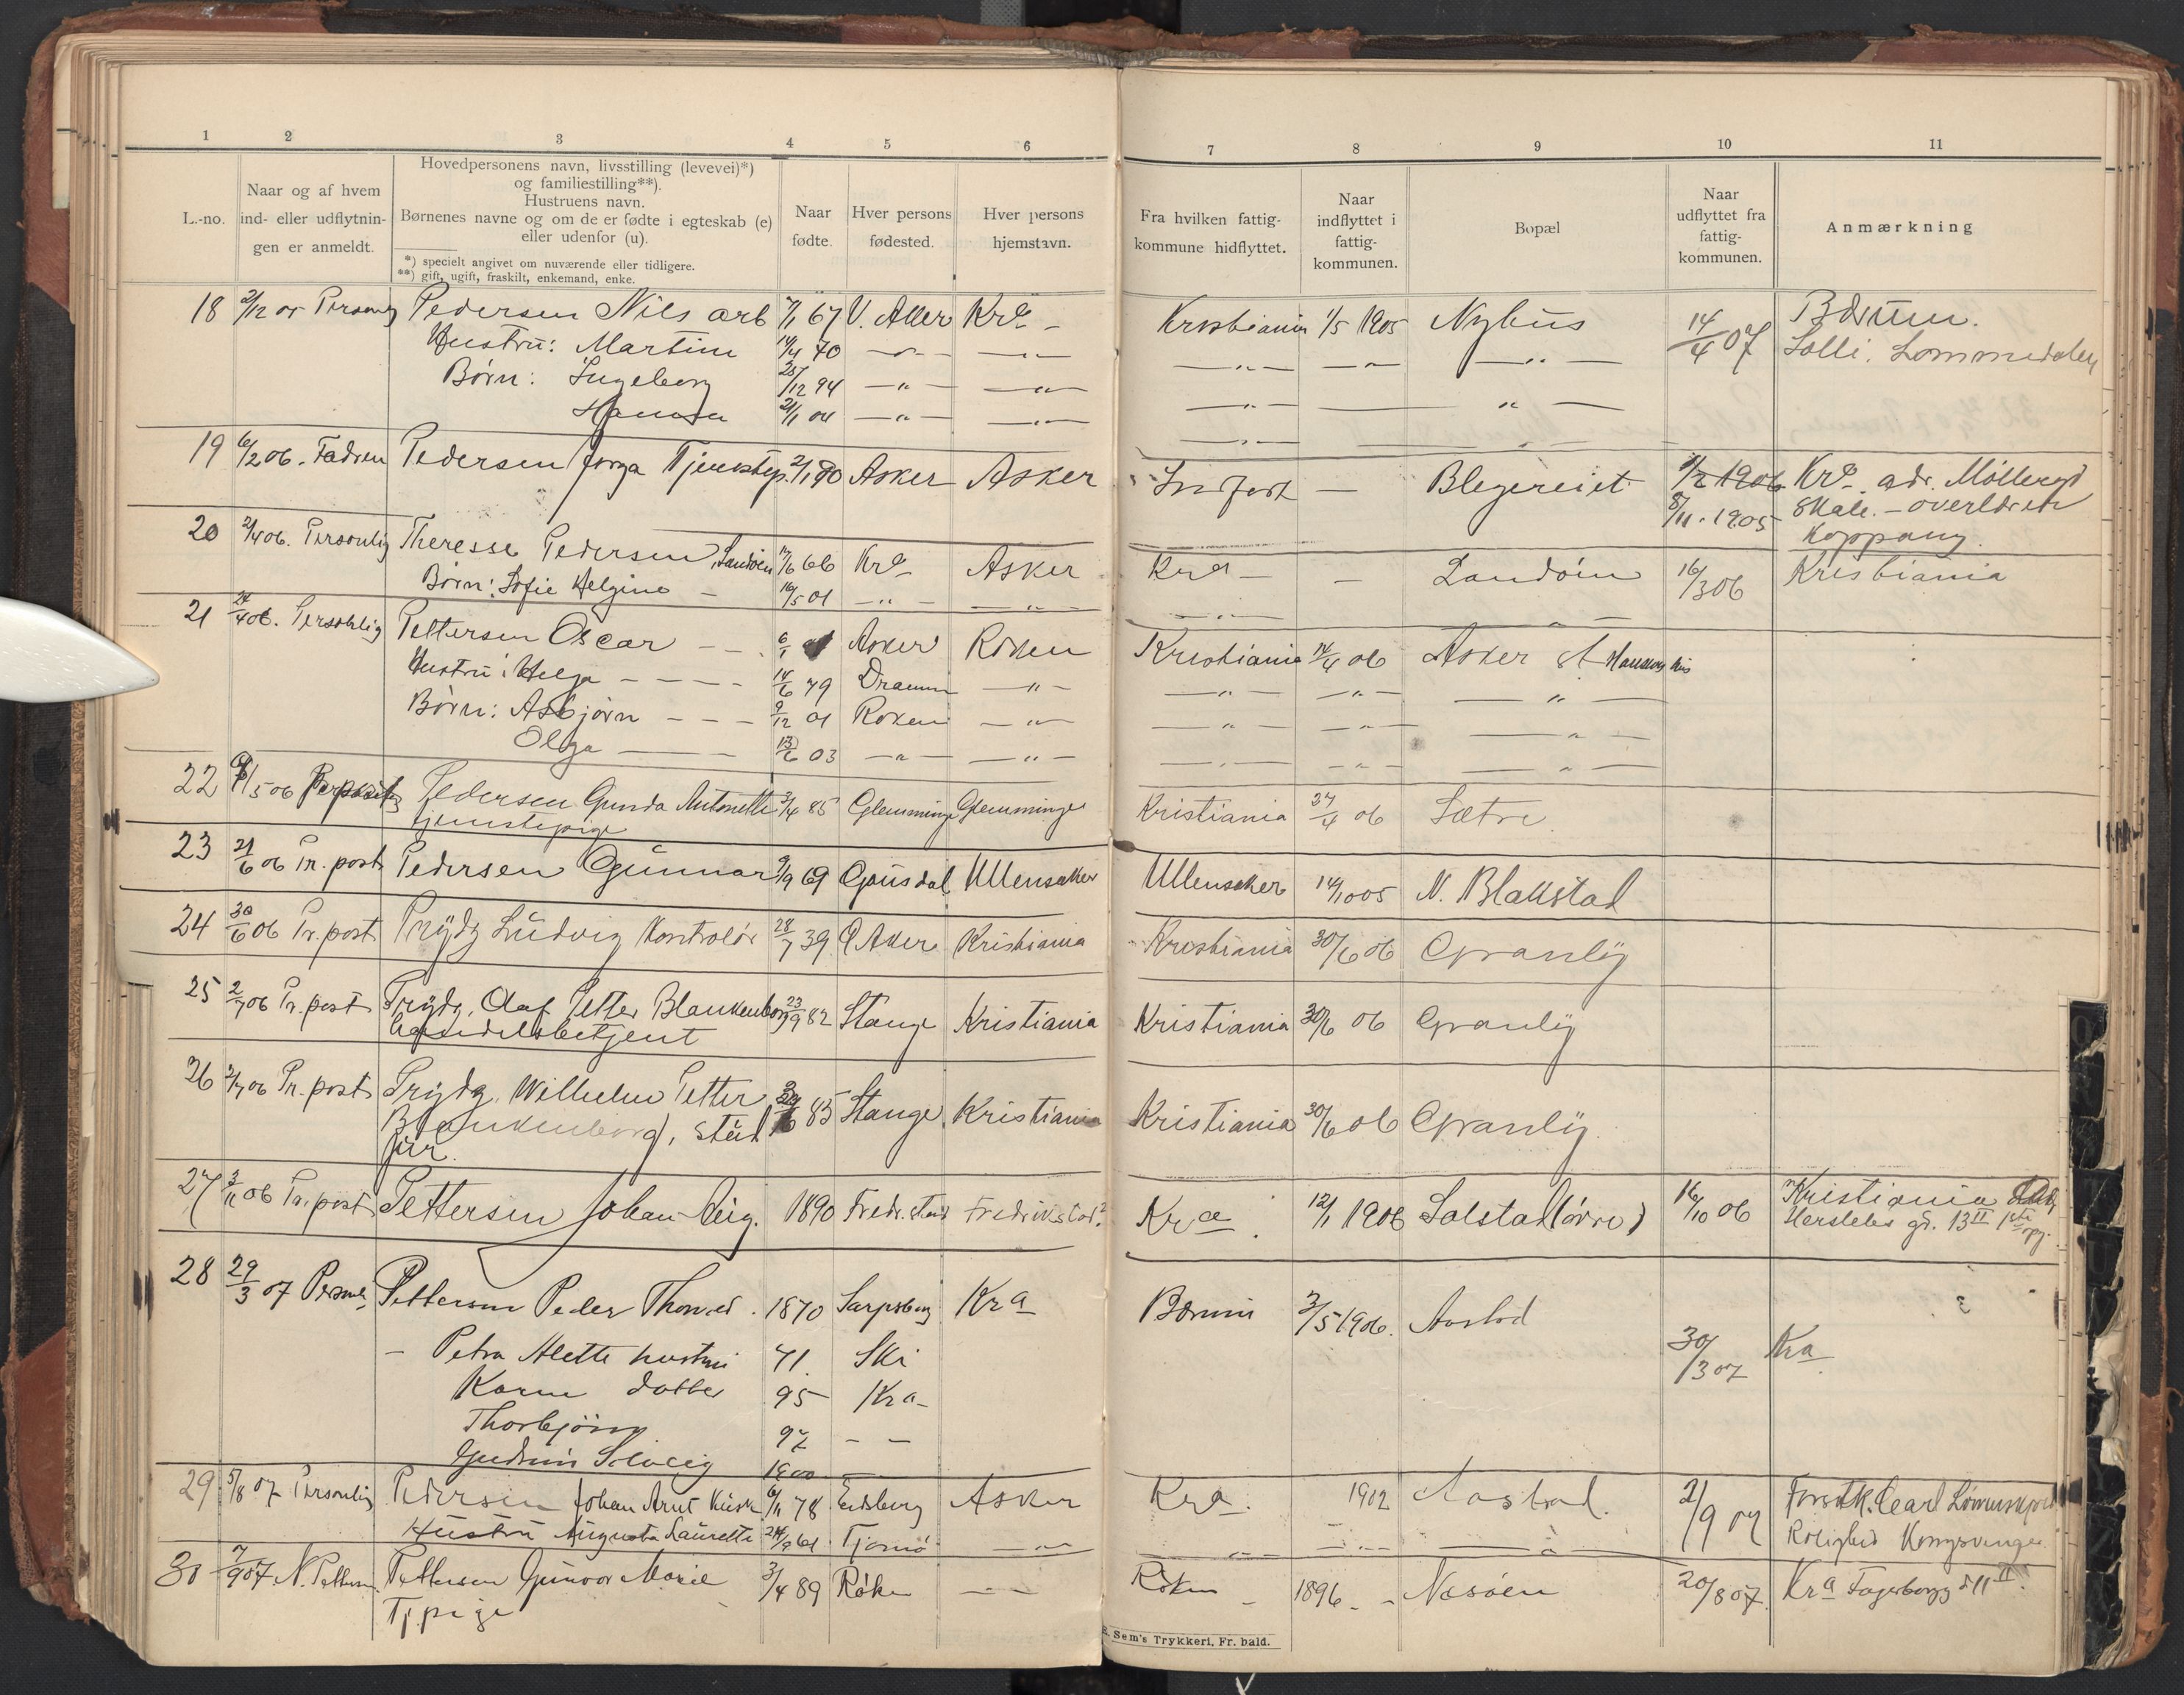 1 2 3 4 5 6 7 8 9 10 11
L.-no.
Naar og af hvem
ind- eller udflytnin-
gen er anmeldt.
Hovedpersonens navn, livsstilling (levevei)*)
og familiestilling**).
Hustruens navn.
Børnenes navne og om de er fødte i egteskab (e)
eller udenfor (u).
*) specielt angivet om nuværende eller tidligere.
**) gift, ugift, fraskilt, enkemand, enke.
Naar
fødte.
Hver persons
fødested.
Hver persons
hjemstavn.
Fra hvilken fattig-
kommune hidflyttet.
Naar
indflyttet i
fattig-
kommunen.
Bopæl
Naar
udflyttet fra
fattig-
kommunen.
Anmærkning
18 2/12 05 Personlig Pedersen Nils arb 7/1 67 V. Aker Kra - Kristiania 1/5 1905 Nyhus 14/4 07 Bærum.
Hustru: Martine 14/4 70 — " — — " — — " — — " — — " — Solli. Lommedalen
Børn: Ingeborg 25/12 94 — " — — " — — " — — " —
Hanna 21/1 04 — " — — " — — " — — " —
19 6/2 06. Faderen Pedersen Jonga Tjenestep. 2/1 90 Asker Asker Indført — Blegeriet 1/2 1906 Kra. adr. Møllergd
8/11. 1905 Skale. - overlærer
Koppang.
20 2/4 06. Personlig Theresse Pedersen, Landøen 17/6 66 Kra Asker Kra - — Landøen 16/3 06 Kristiania
Børn: Sofie Helgine — 16/5 01 — " — — " — — " — — " —
21 24/4 06. Personlig Pettersen Oscar — — 6/1 Asker Røken Kristiania 14/4 06 Asker A Hansens hus
Hustru: Helga — — — — 14/6 79 Dramm — " — — " — — " — — " —
Børn: Asbjørn — — — 9/12 01 Røken — " — — " — — " — — " —
Olga — — 13/6 03 — " — — " — — " — — " — — " —
22 /5 06 Pedersen Gunda Antonette 3/4 85 Glemminge Glemminge Kristiania 27/4 06 Sætre
tjenestepige
23 21/6 06 Pr. post Pedersen Gunnar 9/9 69 Gausdal Ullensaker Ullensaker 14/10 05 N. Blakstad
24 30/6 06 Pr. post Prydz Ludvig Kontrolør 28/7 39. Ø Aker Kristiania Kristiania 30/6 06 Granly
25 2/7 06 Pr. post Prydz, Olaf Petter Blankenborg 23/9 82 Stange Kristiania Kristiania 30/6 06 Granly
Handelsbetjent
26 2/7 06 Pr. post Prydz, Wilhelm Petter 85 Stange Kristiania Kristiania 30/6 06 Granly.
Blankenborg, stud
jur.
27 3/11 06 Pr. post Pettersen Johan Aug. 1890 Fredr.stad Fredrikstad? Kra. 12/1 1906 Solstad (øvre) 16/10 06 Kristiania
Herslebs gd. 13 II 1ste opg.
28 29/3 07 Personl. Pettersen Peder Thomas. 1870 Sarpsborg Kra Bærum 3/5 1906. Aastad
— Petra Alette hustru 71. Ski 30/3 07 Kra
Karen datter 95 Kra -
Thorbjørn 97 — —
Gudrun Solveig 1900
29 5/8 07 Personlig Pedersen Johan Arnt Kusk 6/11 78 Eidsberg Asker Kra. 1902 Aastad. 2/9 07 Forstk. Carl Lømmskjold
Hustru Augusta Laurette 24/9 61 Tjømø — " — — " — — " — — " — Rolighed Kongsvinger
30 7/9 07 N. Pettersen Pettersen Gunvor Marie 3/4 89 Røken — — Røken — 1896 — - Nesøen 20/8 07. Kra Fagerborggd 11 II.
Tj.pige
E. Sem's Trykkeri, Fr. hald.